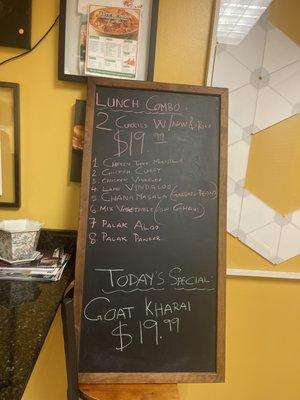 LUNCH COMBO:
2 CURRIES W/NAN & RICE
$19.99
1 CHICKEN TIKKA MASALA
2 CHICKEN CURRY
3 CHICKEN VINDALOO
4 LAMB VINDALOO
5 CHANA MASALA (GARBANZO BEANS)
6 MIX VEGETABLE
7 PALAK ALOO
8 PALAK PANEER
TODAY'S SPECIAL:
GOAT KHARAI
$19.99